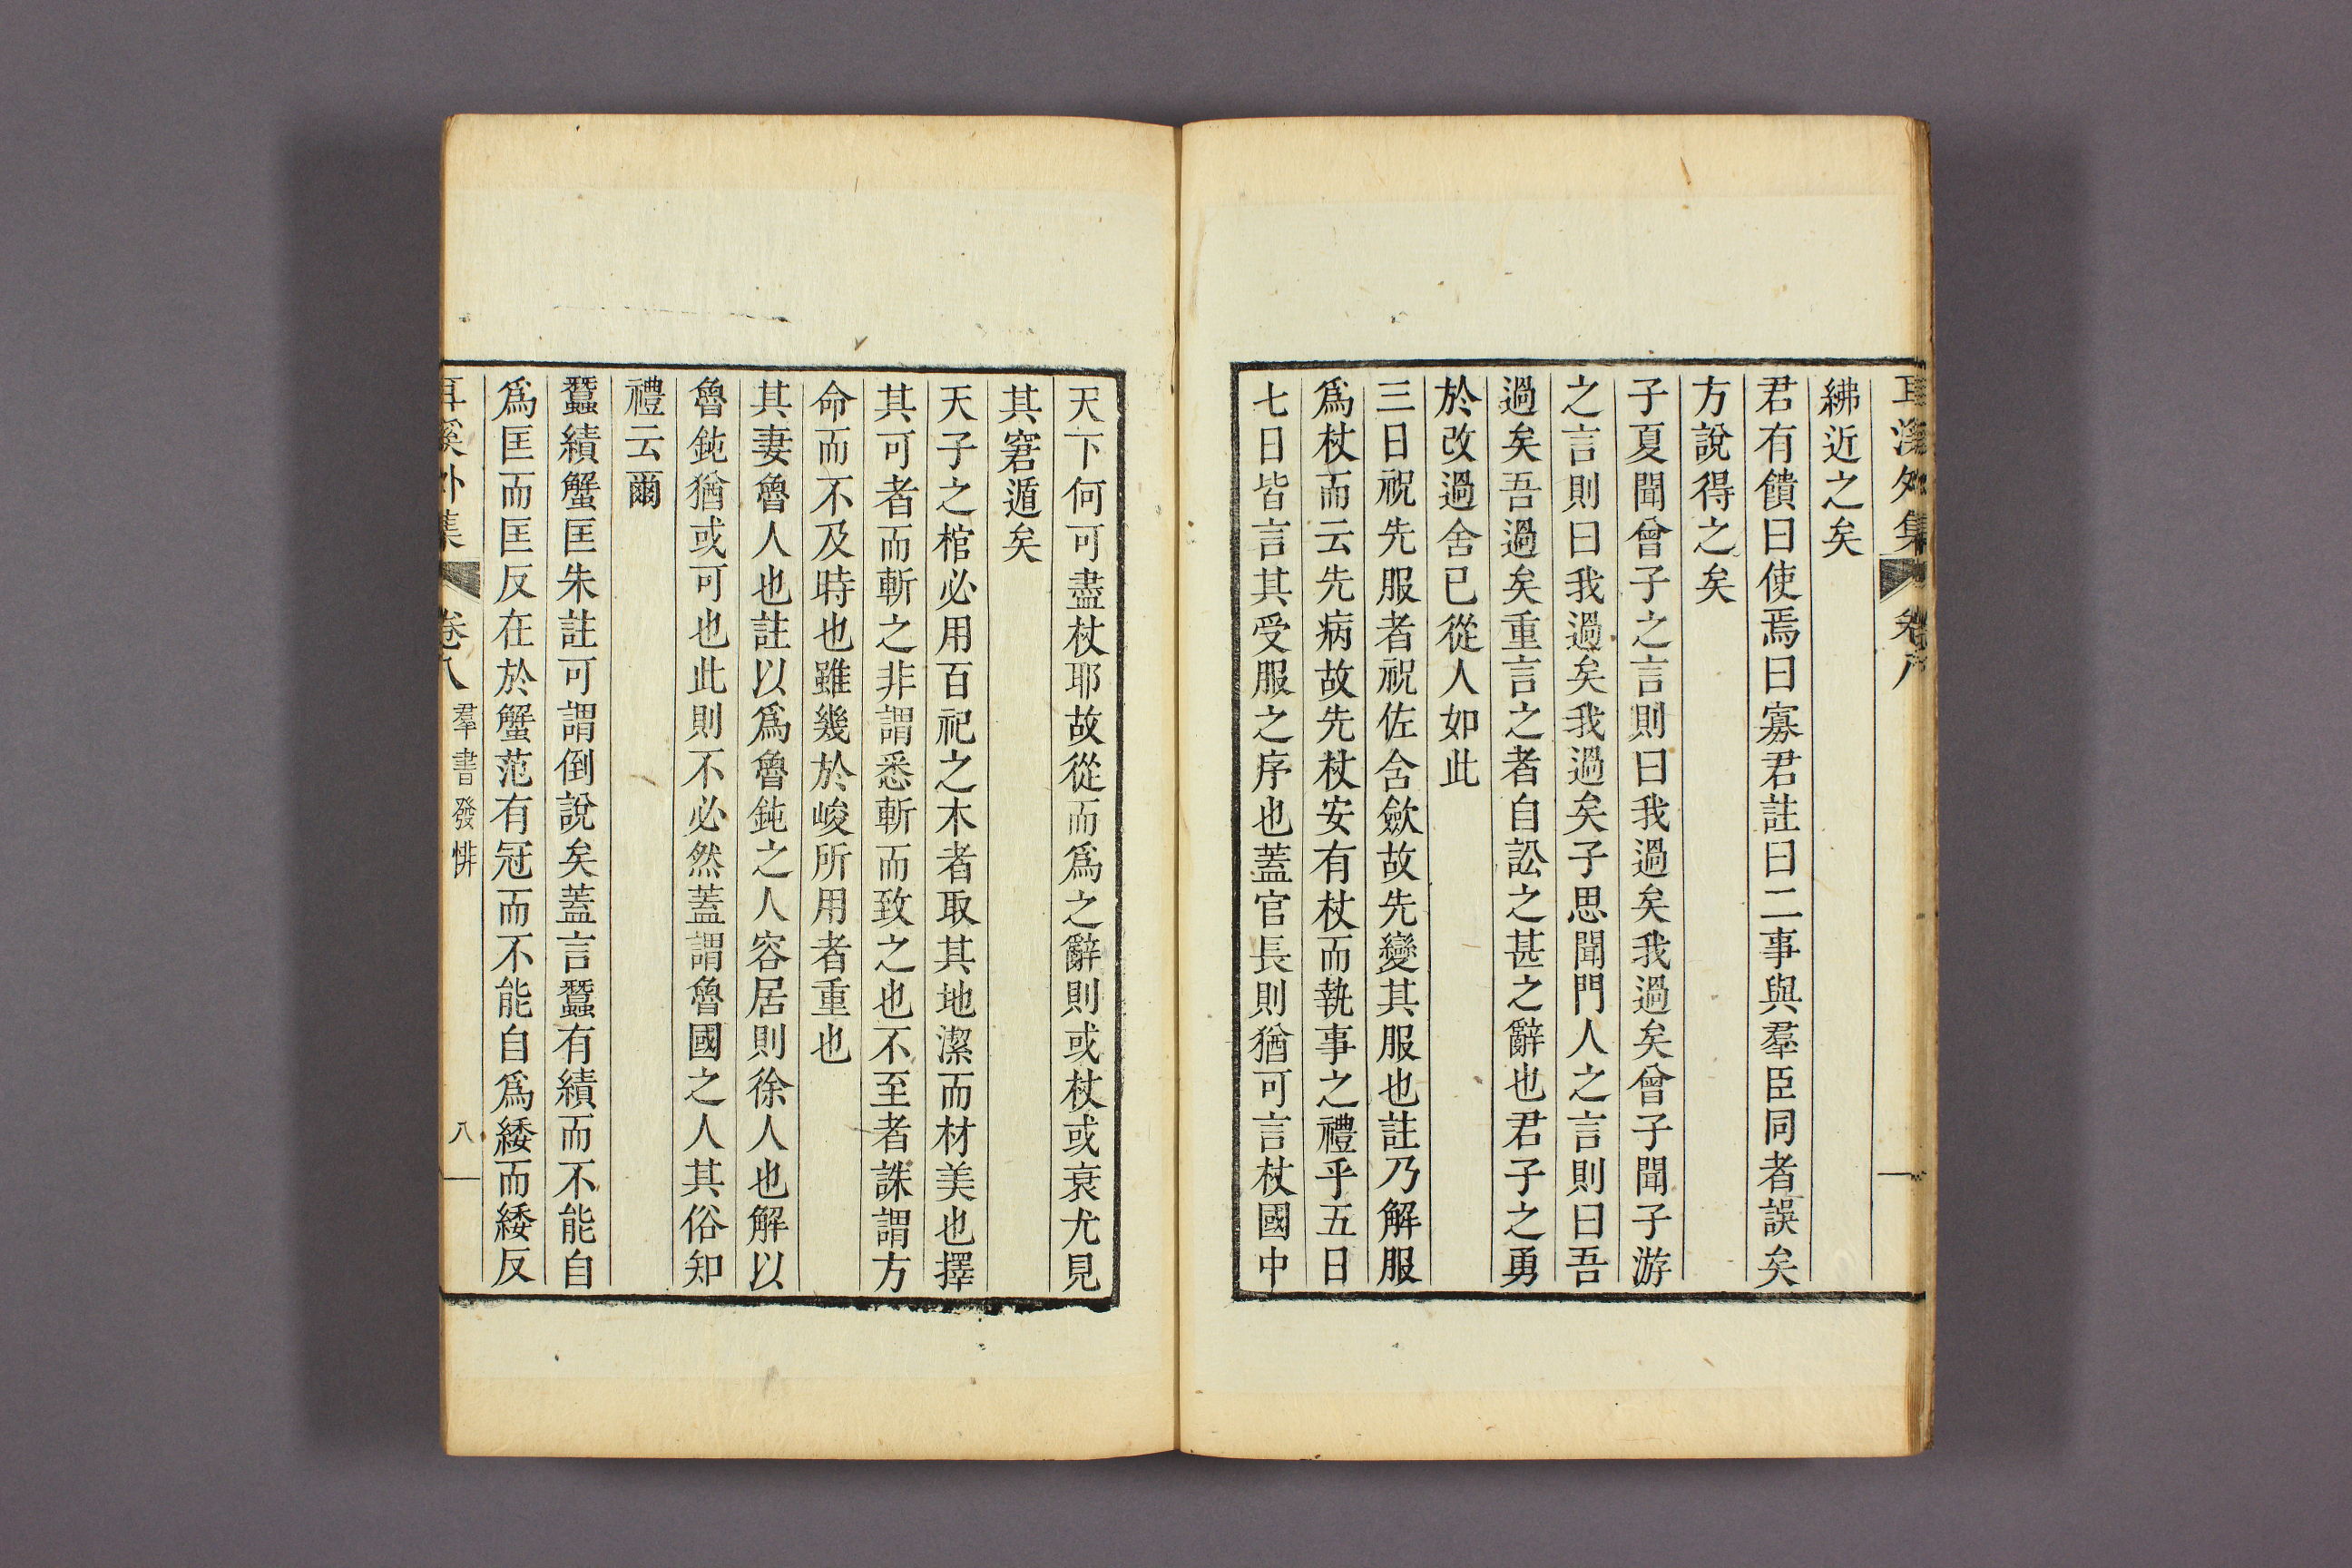 耳溪外集 卷八
紼近之矣
君有饋曰使焉曰寡君註曰二事與羣臣同者誤矣
方說得之矣
子夏聞曾子之言則曰我過矣我過矣曾子聞子游
之言則曰我過矣我過矣子思聞門人之言則曰吾
過矣吾過矣重言之者自訟之甚之辭也君子之勇
於改過舍已從人如此
三日祝先服者祝佐含斂故先變其服也註乃解服
爲杖而云先病故先杖安有杖而執事之禮乎五日
七日皆言其受服之序也蓋官長則猶可言杖國中
天下何可盡杖耶故從而爲之辭則或杖或衰尤見
其窘遁矣
天子之棺必用百祀之木者取其地潔而材美也擇
其可者而斬之非謂悉斬而致之也不至者誅謂方
命而不及時也雖幾於峻所用者重也
其妻魯人也註以爲魯鈍之人容居則徐人也解以
魯鈍猶或可也此則不必然蓋謂魯國之人其俗知
禮云爾
蠶績蟹匡朱註可謂倒說矣蓋言蠶有績而不能自
爲匡而匡反在於蟹范有冠而不能自爲緌而緌反
耳溪外集 卷八 羣書發悱 八